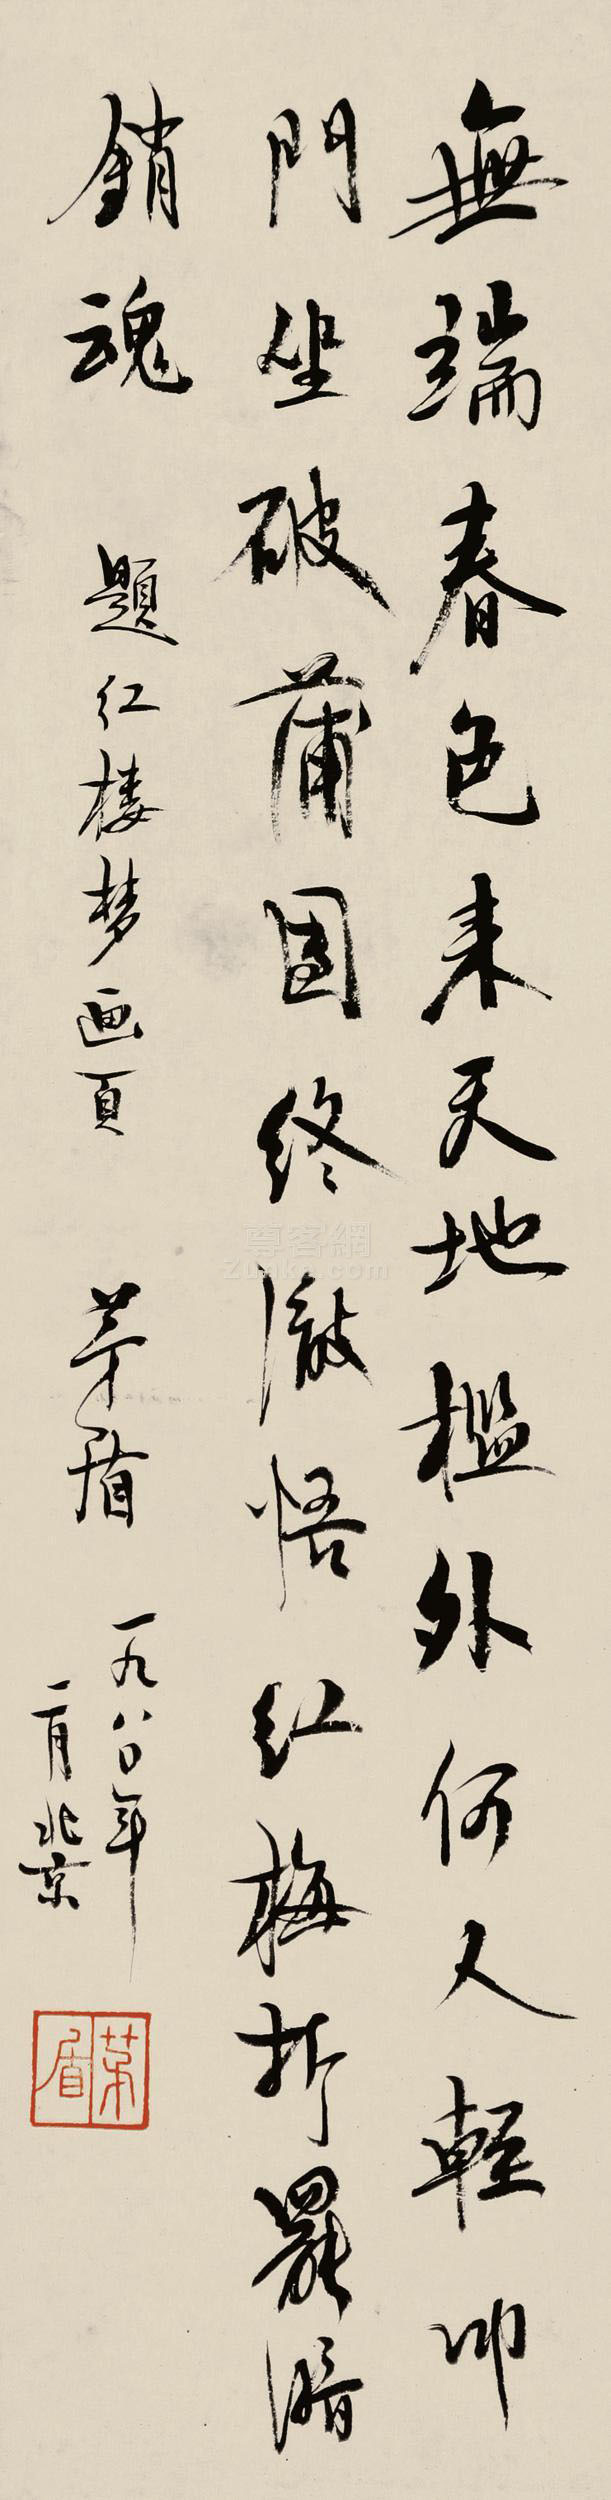 無端春色来天地檻外何人輕叩
門坐破蒲團终澈悟红梅折罷暗
銷魂
題红楼梦画頁
茅盾
一九八〇年
二月北京
茅盾
尊客網
Zunke.com